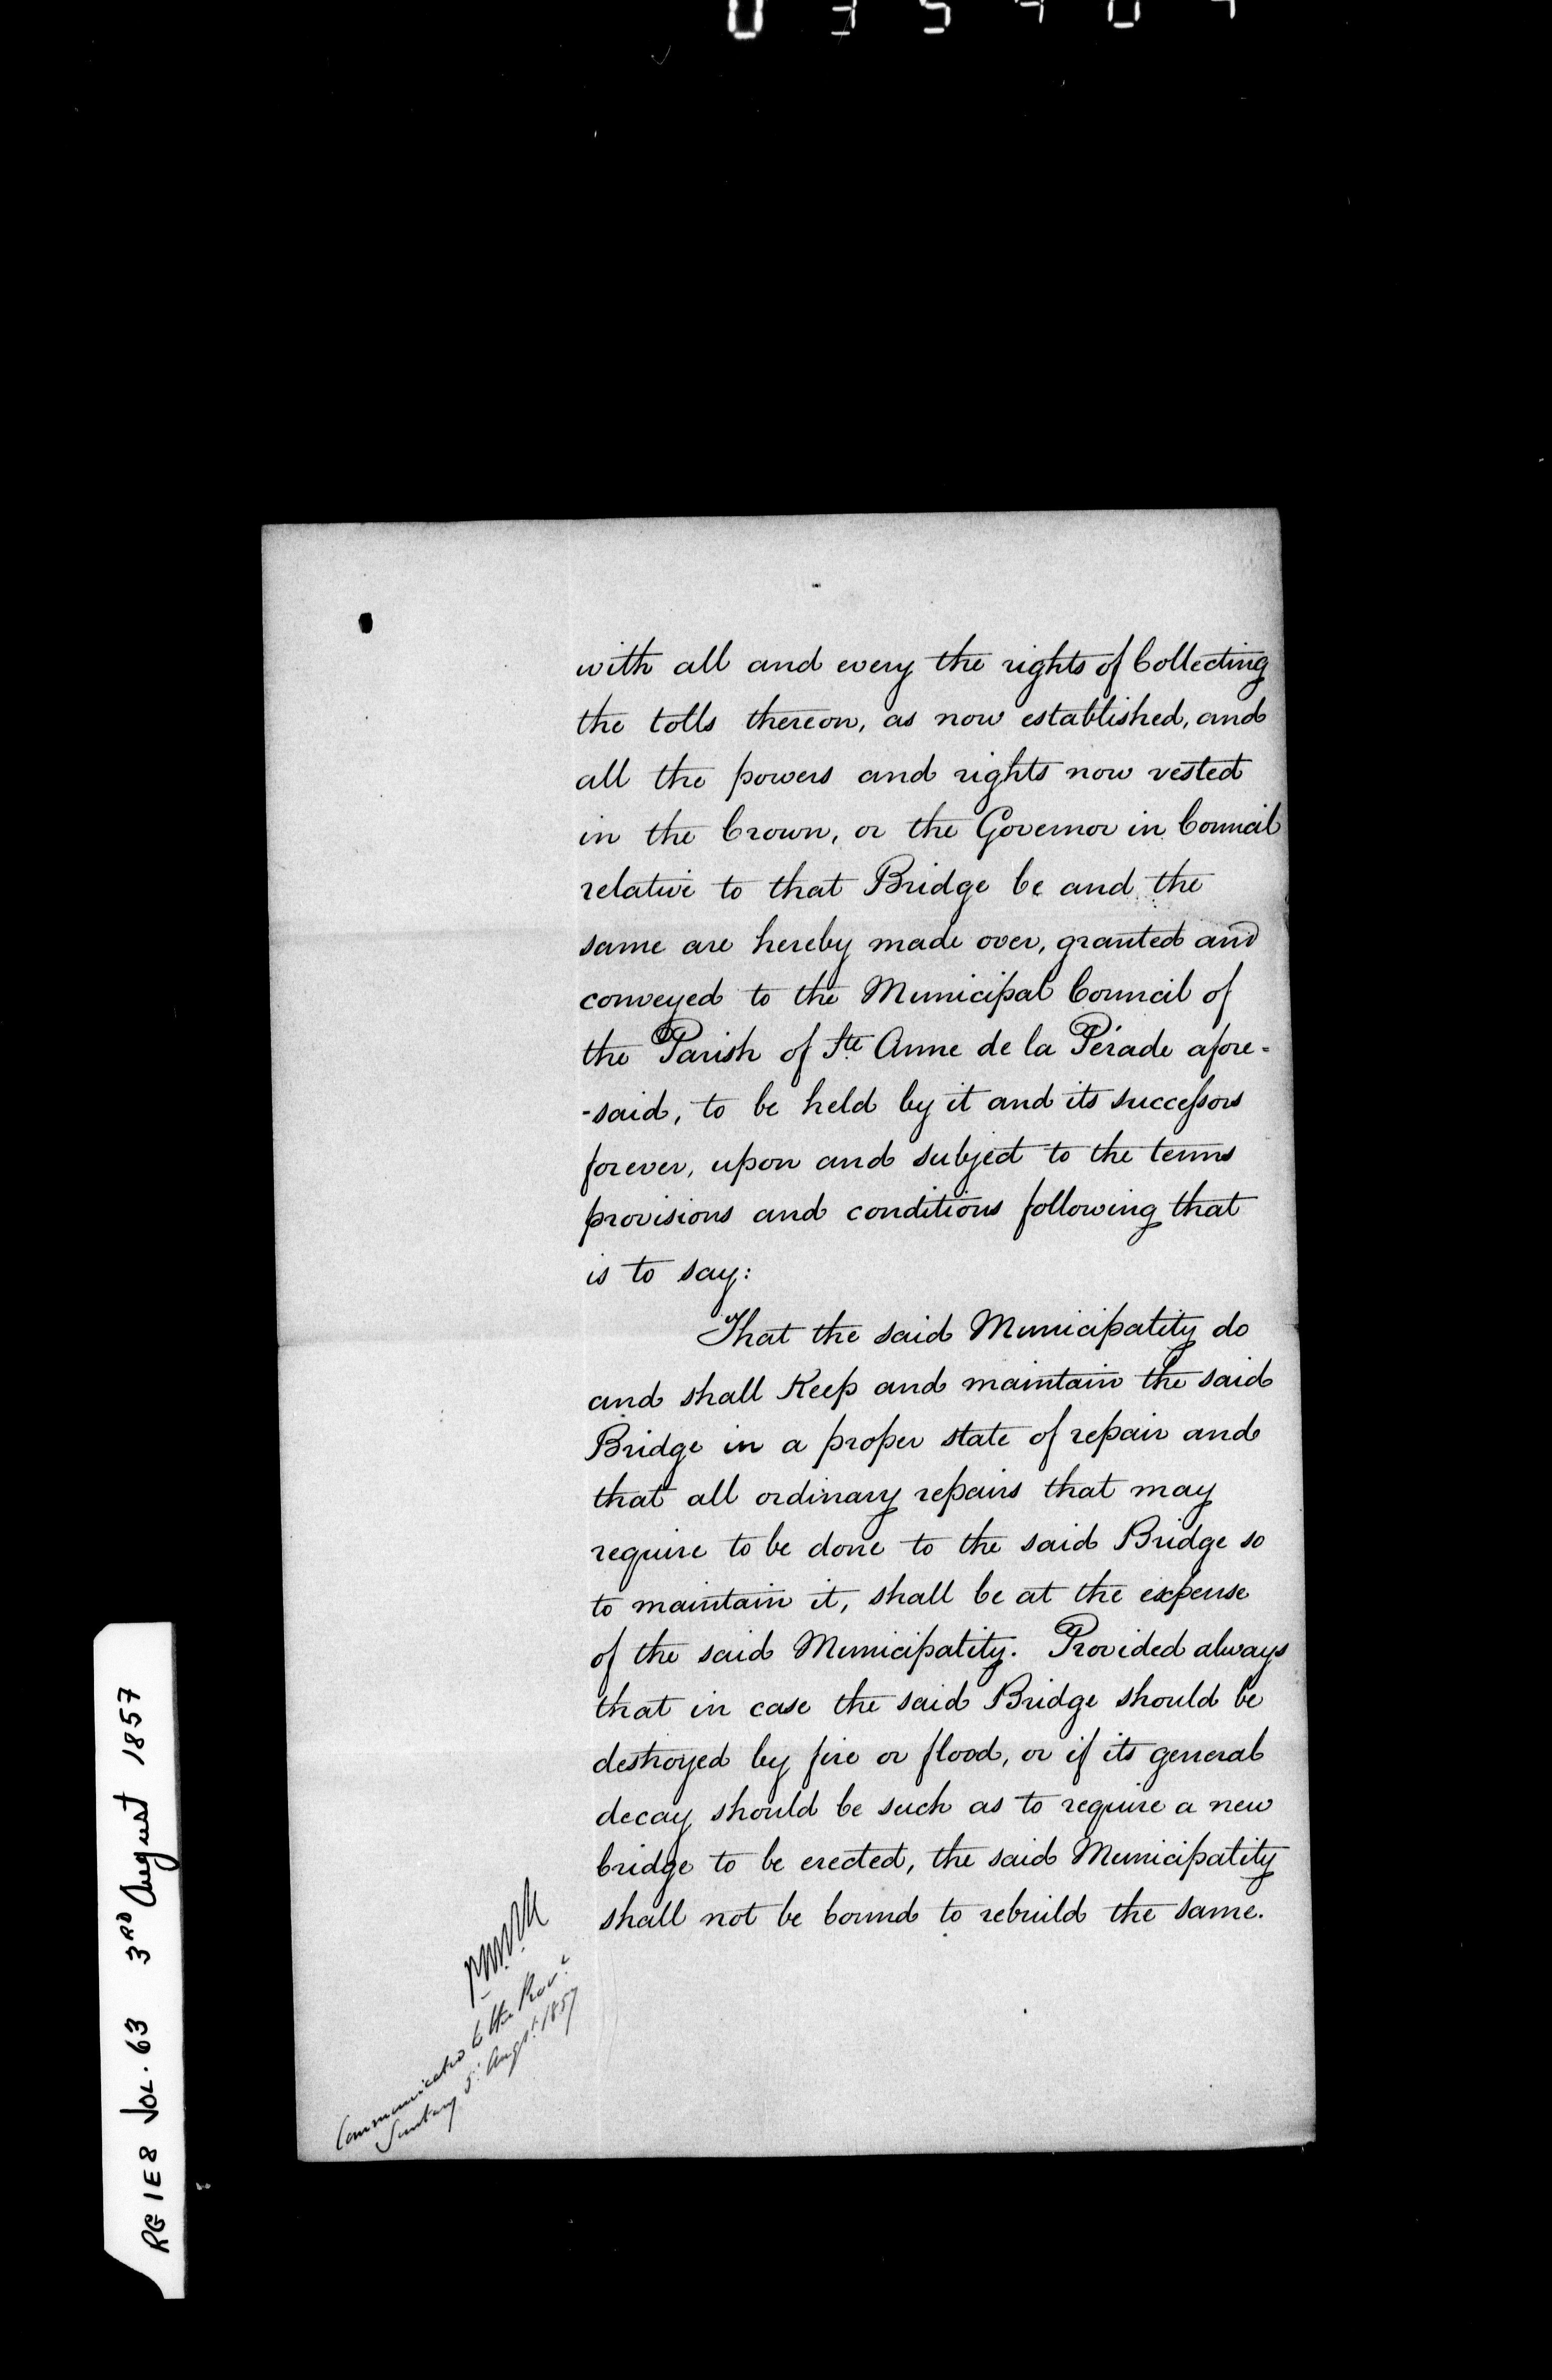 with all and every the rights of Collecting
the tolls thereon, as now established, and
all the powers and rights now vested
in the Crown, or the Governor in Council
relative to that Bridge be and the
same are hereby made over, granted and
conveyed to the Municipal Council of
the Parish of Ste Anne de la Pérade afore-
-said, to be held by it and its successors
forever, upon and subject to the terms
provisions and conditions following that
is to say:
That the said Municipality do
and shall Keep and maintain the said
Bridge in a proper state of repair and
that all ordinary repairs that may
require to be done to the said Bridge so
to maintain it, shall be at the expense
of the said Municipality. Provided always
that in case the said Bridge should be
destroyed by fire or flood, or if its general
decay should be such as to require a new
bridge to be erected, the said Municipality
shall not be bound to rebuild the same.
Communicated to the Prov.l
Secretary 5. Augst. 1857
RG 1 E8 VOL. 63 3RD August 1857